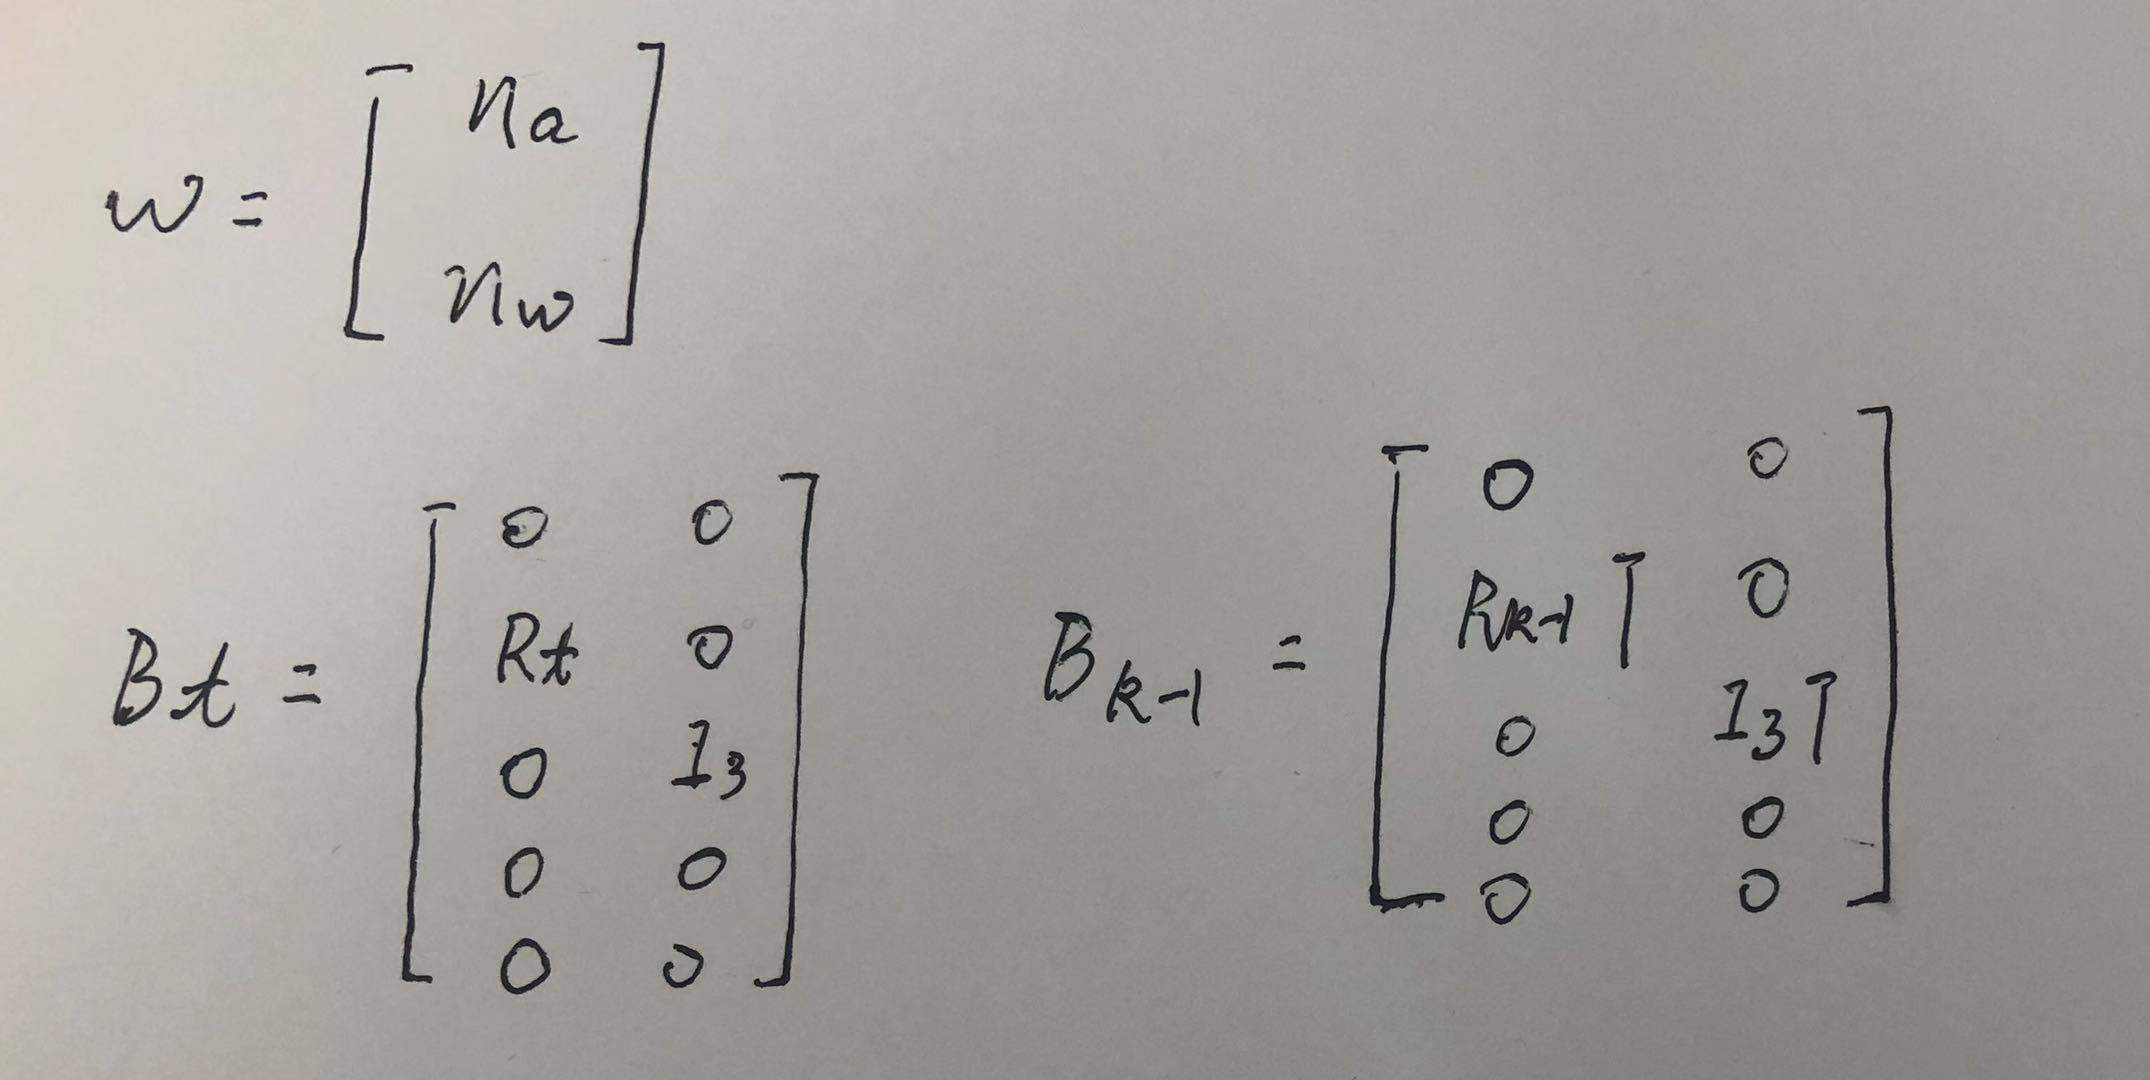 w = [ na
nw ]
Bt = [ 0 0
Rt 0
0 I3
0 0
0 0 ]
Bk-1 = [ 0 0
Rk-1 T 0
0 I3 T
0 0
0 0 ]